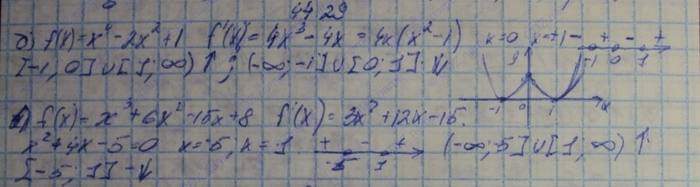 44 29
б) f(x)=x⁴-2x²+1 f'(x)=4x³-4x=4x(x²-1) x=0 x=±1 - + - +
-1 0 1
[-1;0]∪[1;∞) ↑; (-∞;-1]∪[0;1] ↓
-1 0 1 x
в) f(x)=x³+6x²-15x+8 f'(x)=3x²+12x-15
x²+4x-5=0 x=-5; x=1 + - + (-∞;5]∪[1;∞) ↑
-5 1
[-5;1] ↓